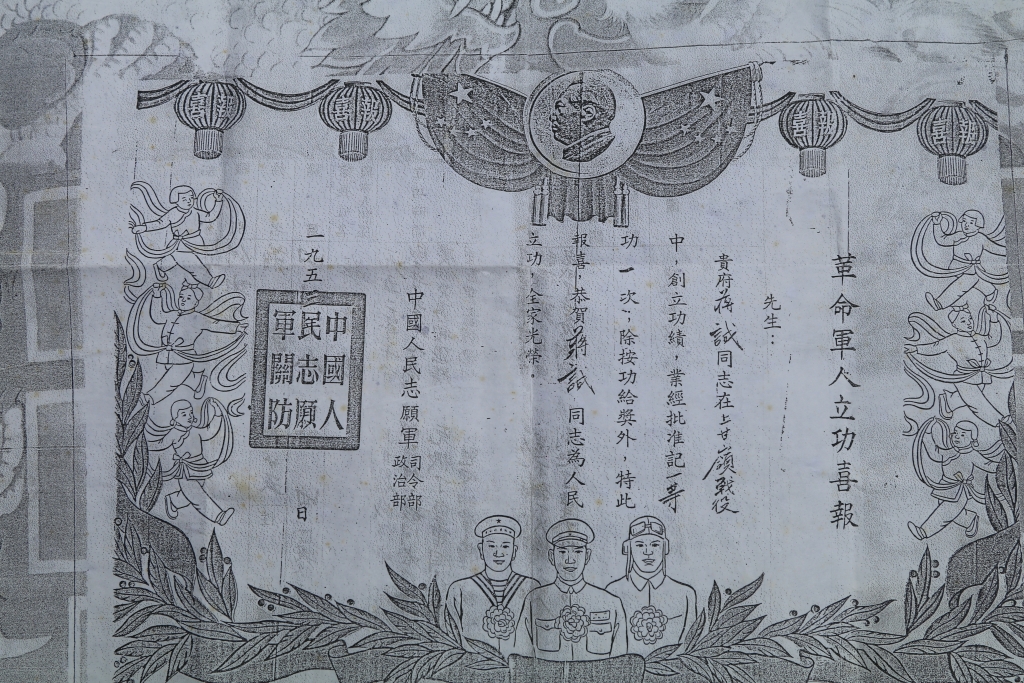 革命軍人立功喜報
先生：
貴府蔣誠同志在上甘嶺戰役
中，創立功績，業經批准記一等
功一次；除按功給獎外，特此
報喜，恭賀蔣誠同志為人民
立功，全家光榮。
中國人民志願軍司令部
政治部
一九五
日
中國人
民志願
軍關防